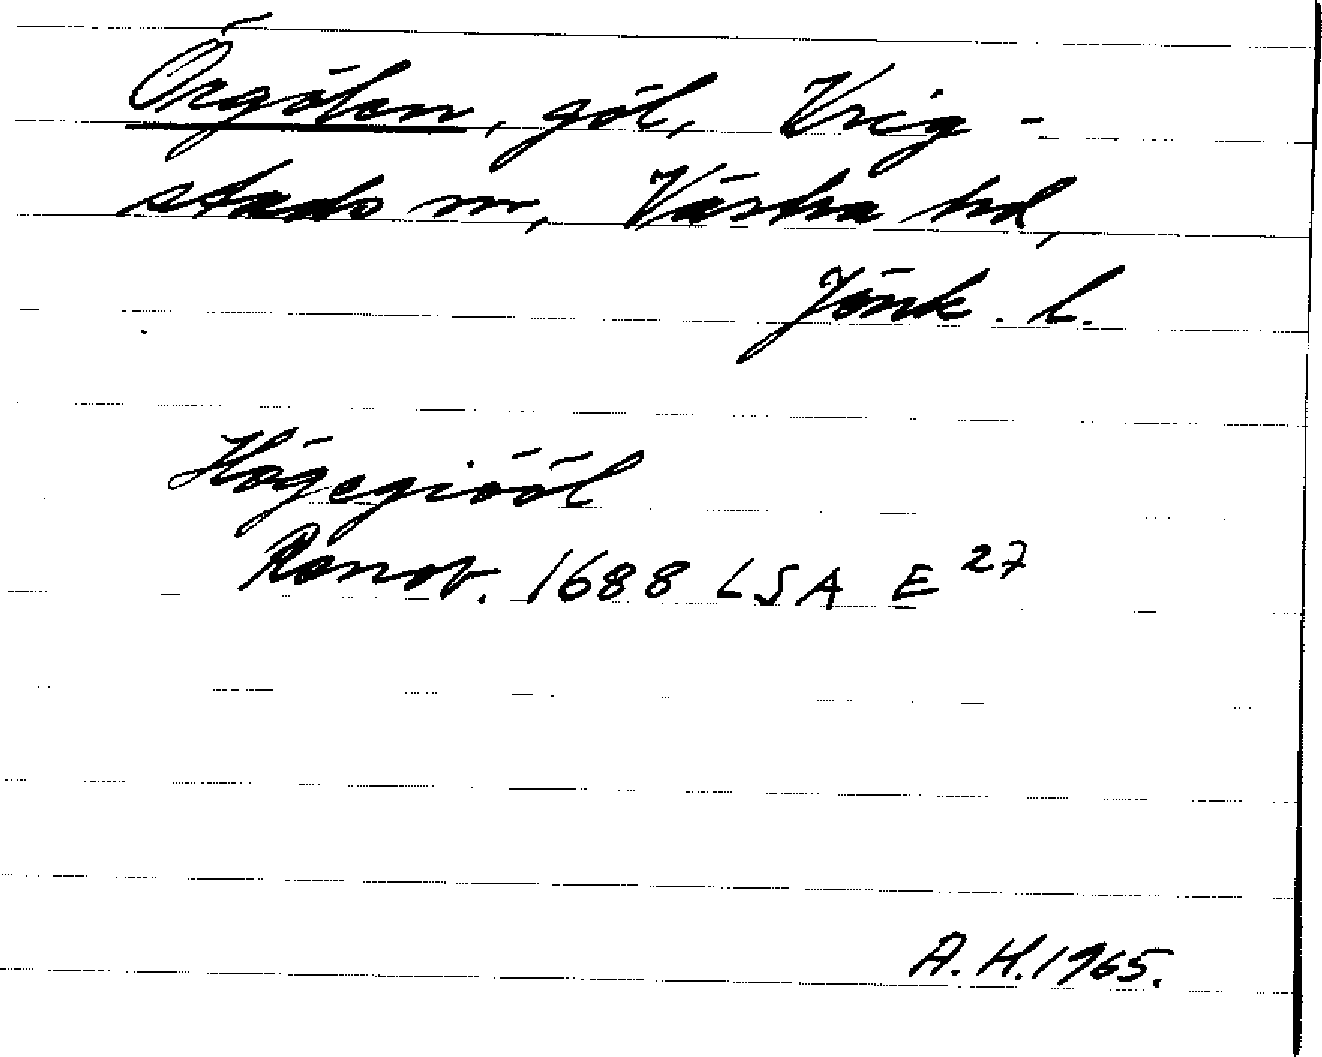 Örgölen, göl, Vrig-
stads sn, Västra hd,
Jönk. l.
Högegiööl
Ransb. 1688 LSA E 27
A. H. 1965.